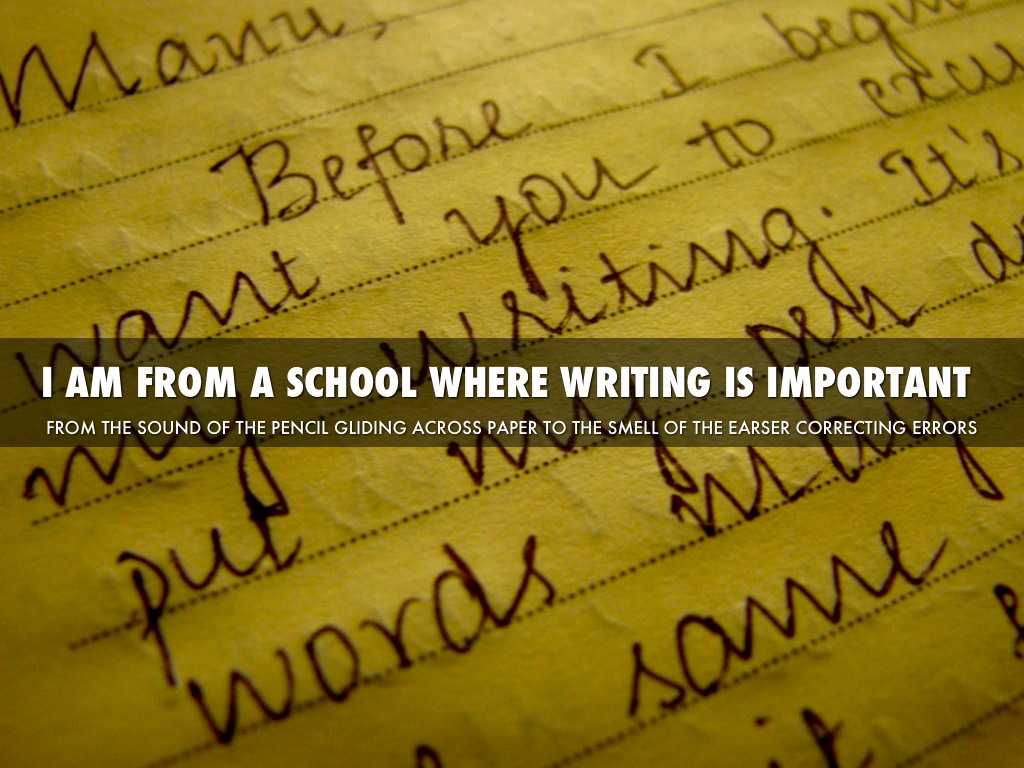 Manu,
Before I begin
want you to excu
my writing. It's
put my pen do
words in by
some
it
I AM FROM A SCHOOL WHERE WRITING IS IMPORTANT
FROM THE SOUND OF THE PENCIL GLIDING ACROSS PAPER TO THE SMELL OF THE EARSER CORRECTING ERRORS